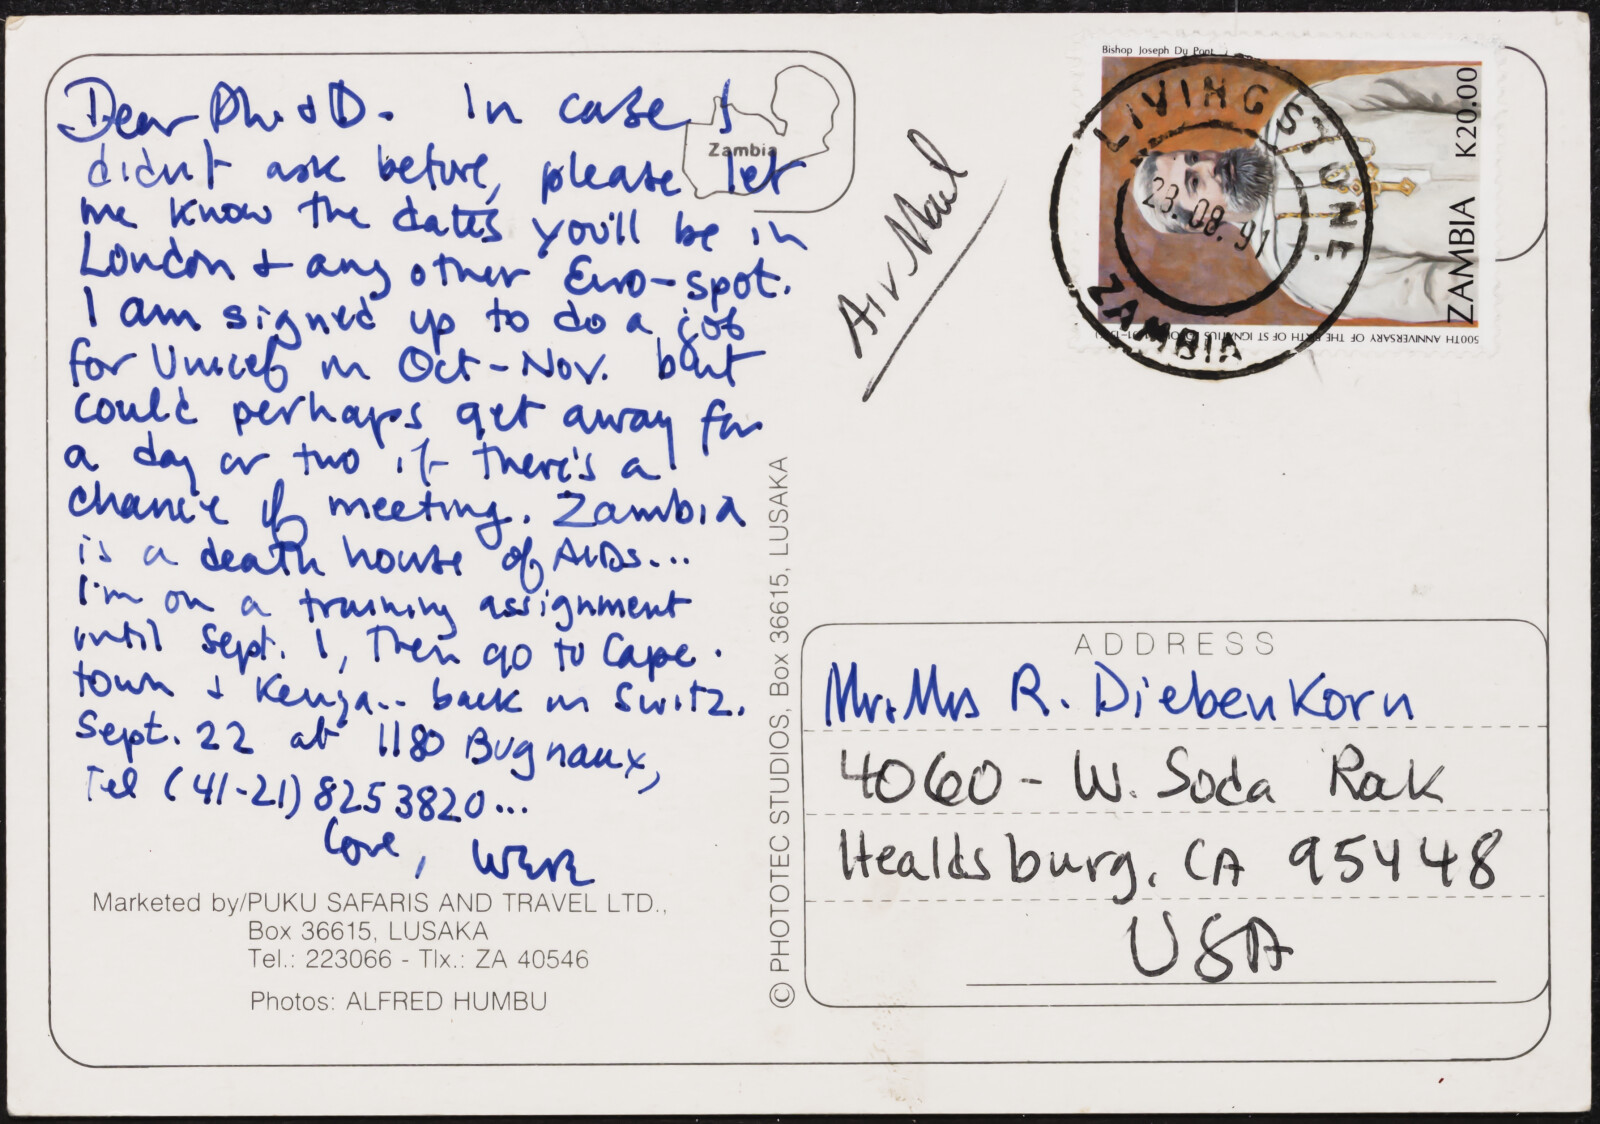 Dear Phil & D. In case I
didn't ask before, please let
me know the dates you'll be in
London & any other Euro-spot.
I am signed up to do a job
for Unicef in Oct-Nov. but
could perhaps get away for
a day or two if there's a
chance of meeting. Zambia
is a death house of AIDs...
I'm on a training assignment
until Sept. 1, then go to Cape-
town & Kenya.. back in Switz.
Sept. 22 at 1180 Bugnaux,
Tel (41-21) 8253820...
Love,
Zambia
Marketed by/PUKU SAFARIS AND TRAVEL LTD.,
Box 36615, LUSAKA
Tel.: 223066 - Tlx.: ZA 40546
Photos: ALFRED HUMBU
© PHOTOTEC STUDIOS, Box 36615, LUSAKA
Air Mail
Bishop Joseph Du Pont
ZAMBIA K20.00
500TH ANNIVERSARY OF THE BIRTH OF ST IGNATIUS
LIVINGSTONE.
23.08.91
ZAMBIA
ADDRESS
Mr. Mrs R. Diebenkorn
4060 - W. Soda Rok
Healdsburg, CA 95448
USA